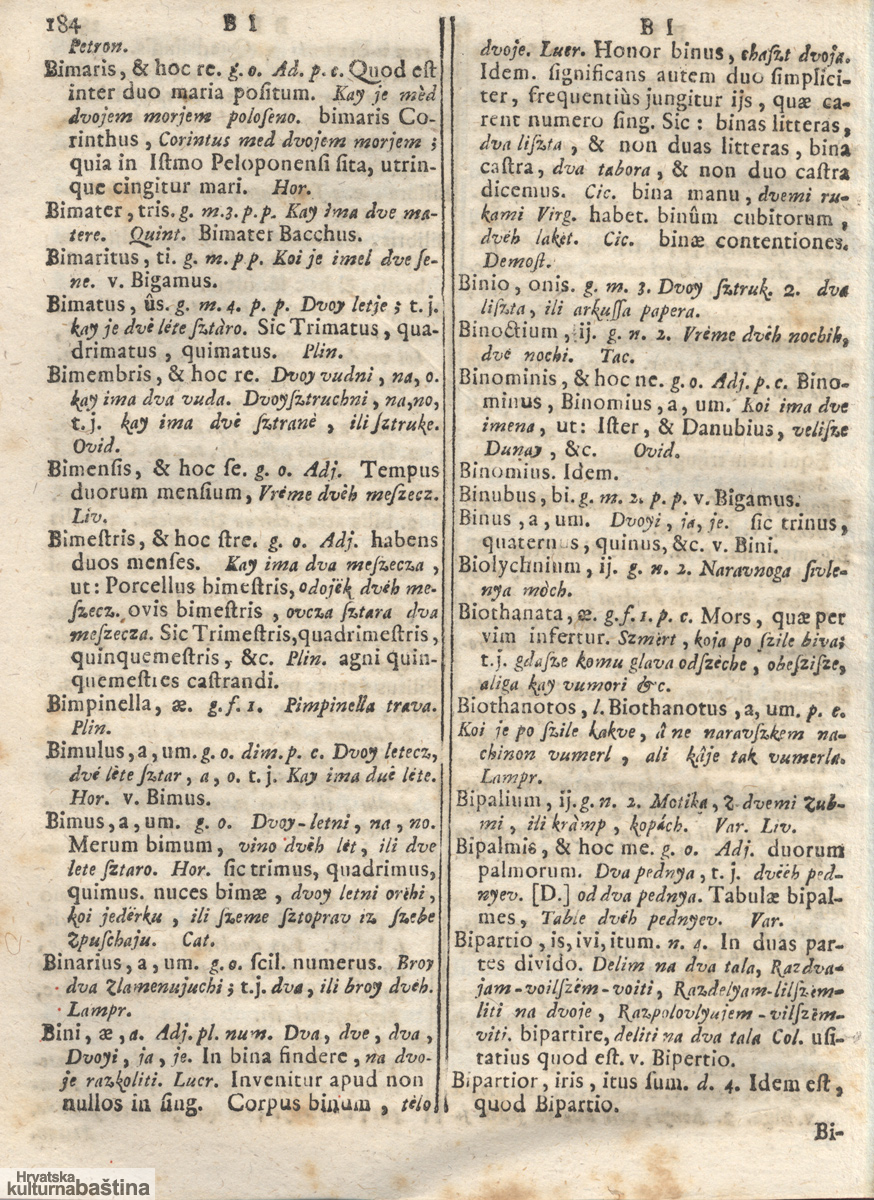 184 B I
Petron.
Bimaris, & hoc re. g. o. Ad. p. c. Quod eſt
inter duo maria poſitum. Kay je mèd
dvojem morjem poloſeno. bimaris Co-
rinthus, Corintus med dvojem morjem;
quia in Iſtmo Peloponenſi ſita, utrin-
que cingitur mari. Hor.
Bimater, tris. g. m. 3. p. p. Kay ima dve ma-
tere. Quint. Bimater Bacchus.
Bimaritus, ti. g. m. p p. Koi je imel dve ſe-
ne. v. Bigamus.
Bimatus, ûs. g. m. 4. p. p. Dvoy letje; t. j.
kay je dvè léte ſztàro. Sic Trimatus, qua-
drimatus, quimatus. Plin.
Bimembris, & hoc re. Dvoy vudni, na, o.
kay ima dva vuda. Dvoyſztruchni, na, no,
t. j. kay ima dvè ſztranè, ili ſztruke.
Ovid.
Bimenſis, & hoc ſe. g. o. Adj. Tempus
duorum menſium, Vréme dvèh meſzecz.
Liv.
Bimeſtris, & hoc ſtre. g. o. Adj. habens
duos menſes. Kay ima dva meſzecza,
ut: Porcellus bimeſtris, odojèk dvéh me-
ſzecz. ovis bimeſtris, ovcza ſztara dva
meſzecza. Sic Trimeſtris, quadrimeſtris,
quinquemeſtris, &c. Plin. agni quin-
quemeſties caſtrandi.
Bimpinella, æ. g. f. 1. Pimpinella trava.
Plin.
Bimulus, a, um. g. o. dim. p. c. Dvoy letecz,
dvé lète ſztar, a, o. t. j. Kay ima duè lète.
Hor. v. Bimus.
Bimus, a, um. g. o. Dvoy-letni, na, no.
Merum bimum, vino dvèh lèt, ili dve
lete ſztaro. Hor. ſic trimus, quadrimus,
quimus. nuces bimæ, dvoy letni orèhi,
koi jedérku, ili ſzeme ſztoprav iz ſzebe
zpuſchaju. Cat.
Binarius, a, um. g. o. ſcil. numerus. Broy
dva zlamenujuchi; t. j. dva, ili broy dvéh.
Lampr.
Bini, æ, a. Adj. pl. num. Dva, dve, dva,
Dvoyi, ja, je. In bina findere, na dvo-
je razkoliti. Lucr. Invenitur apud non
nullos in ſing. Corpus binum, tèlo
B I
dvoje. Lucr. Honor binus, chaſzt dvoja.
Idem. ſignificans autem duo ſimplici-
ter, frequentiùs jungitur ijs, quæ ca-
rent numero ſing. Sic: binas litteras,
dva liſzta, & non duas litteras, bina
caſtra, dva tabora, & non duo caſtra
dicemus. Cic. bina manu, dvemi ru-
kami Virg. habet. binûm cubitorum,
dvèh lakèt. Cic. binæ contentiones.
Demoſt.
Binio, onis. g. m. 3. Dvoy ſztruk. 2. dva
liſzta, ili arkuſſa papera.
Binoctium, ij. g. n. 2. Vréme dvèh nochih,
dvè nochi. Tac.
Binominis, & hoc ne. g. o. Adj. p. c. Bino-
minus, Binomius, a, um. Koi ima dve
imena, ut: Iſter, & Danubius, veliſze
Dunay, &c. Ovid.
Binomius. Idem.
Binubus, bi. g. m. 2. p. p. v. Bigamus.
Binus, a, um. Dvoyi, ja, je. ſic trinus,
quaternus, quinus, &c. v. Bini.
Biolychnium, ij. g. n. 2. Naravnoga ſivle-
nya mòch.
Biothanata, æ. g. f. 1. p. c. Mors, quæ per
vim infertur. Szmèrt, koja po ſzile biva;
t. j. gdaſze komu glava odſzèche, obeſziſze,
aliga kay vumori &c.
Biothanotos, l. Biothanotus, a, um. p. c.
Koi je po ſzile kakve, â ne naravſzkem na-
chinon vumerl, ali kâje tak vumerla.
Lampr.
Bipalium, ij. g. n. 2. Motika, z dvemi zub-
mi, ili kràmp, kopàch. Var. Liv.
Bipalmis, & hoc me. g. o. Adj. duorum
palmorum. Dva pednya, t. j. dvèèh ped-
nyev. [D.] od dva pednya. Tabulæ bipal-
mes, Table dvéh pednyev. Var.
Bipartio, is, ivi, itum. n. 4. In duas par-
tes divido. Delim na dva tala, Razdva-
jam-voilſzèm-voiti, Razdelyam-lilſzèm-
liti na dvoje, Razpolovlyujem-vilſzèm-
viti. bipartire, deliti na dva tala Col. uſi-
tatius quod eſt. v. Bipertio.
Bipartior, iris, itus ſum. d. 4. Idem eſt,
quod Bipartio.
Bi-
Hrvatska
kulturnabaština